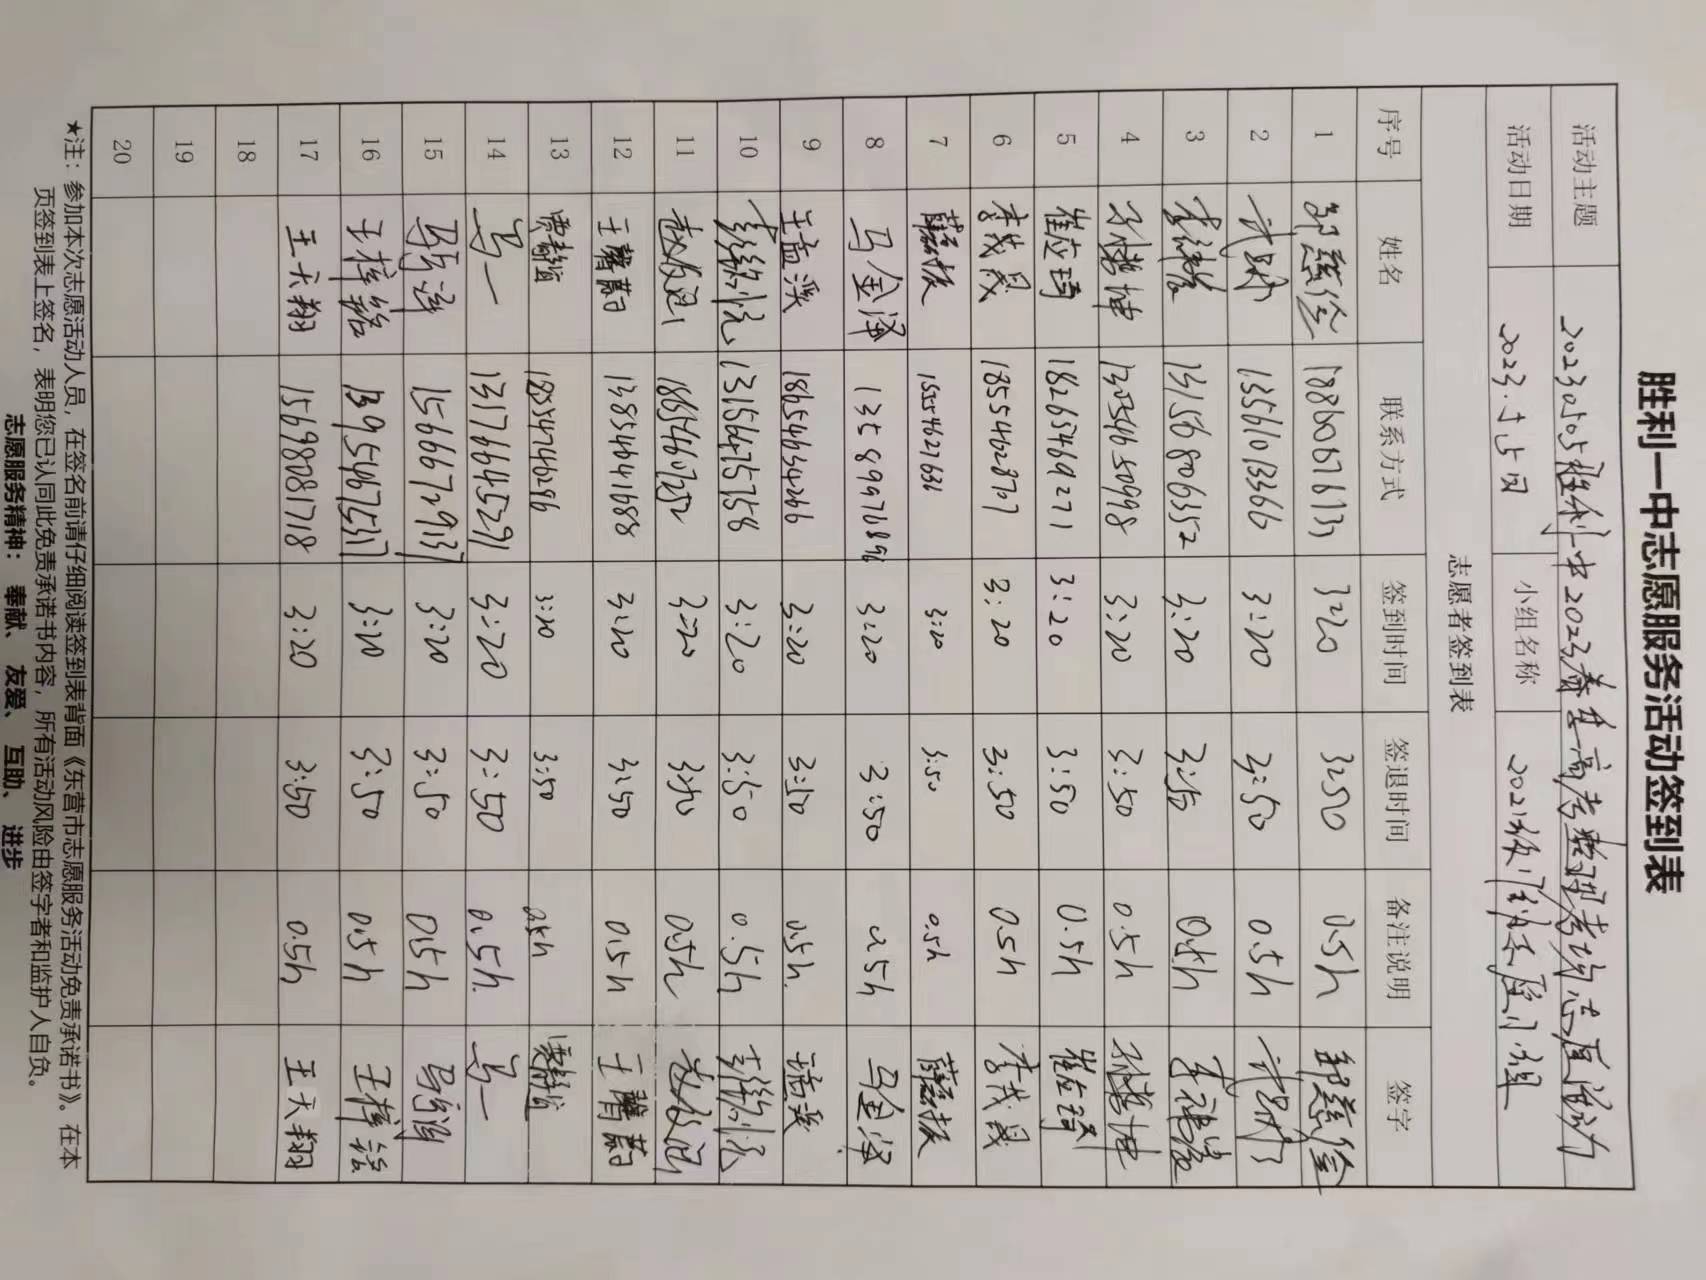 胜利一中志愿服务活动签到表
活动主题 20230505胜利一中2023春季高考整理考场志愿活动
活动日期 2023.5.5日 小组名称 2021级
志愿者签到表
序号 姓名 联系方式 签到时间 签退时间 备注说明 签字
1 3:20 3:50 0.5h
2 13561013366 3:20 3:50 0.5h
3 13156806352 3:20 3:50 0.5h
4 13054650998 3:20 3:50 0.5h
5 崔应琦 18265469271 3:20 3:50 0.5h 崔应琦
6 李茂晟 18554628707 3:20 3:50 0.5h 李茂晟
7 15554627636 3:20 3:50 0.5h
8 马金泽 13589997689 3:20 3:50 0.5h 马金泽
9 王孟溪 18654634266 3:20 3:50 0.5h
10 13156475758 3:20 3:50 0.5h
11 3:20 3:50 0.5h
12 王馨蔚 13854641688 3:20 3:50 0.5h 王馨蔚
13 18554746296 3:20 3:50 0.5h
14 13176645291 3:20 3:50 0.5h
15 15666729137 3:20 3:50 0.5h
16 王梓铭 13954675317 3:20 3:50 0.5h 王梓铭
17 王天翔 15698081718 3:20 3:50 0.5h 王天翔
18
19
20
★注：参加本次志愿活动人员，在签名前请仔细阅读签到表背面《东营市志愿服务活动免责承诺书》。在本
页签到表上签名，表明您已认同此免责承诺书内容，所有活动风险由签字者和监护人自负。
志愿服务精神：奉献、友爱、互助、进步